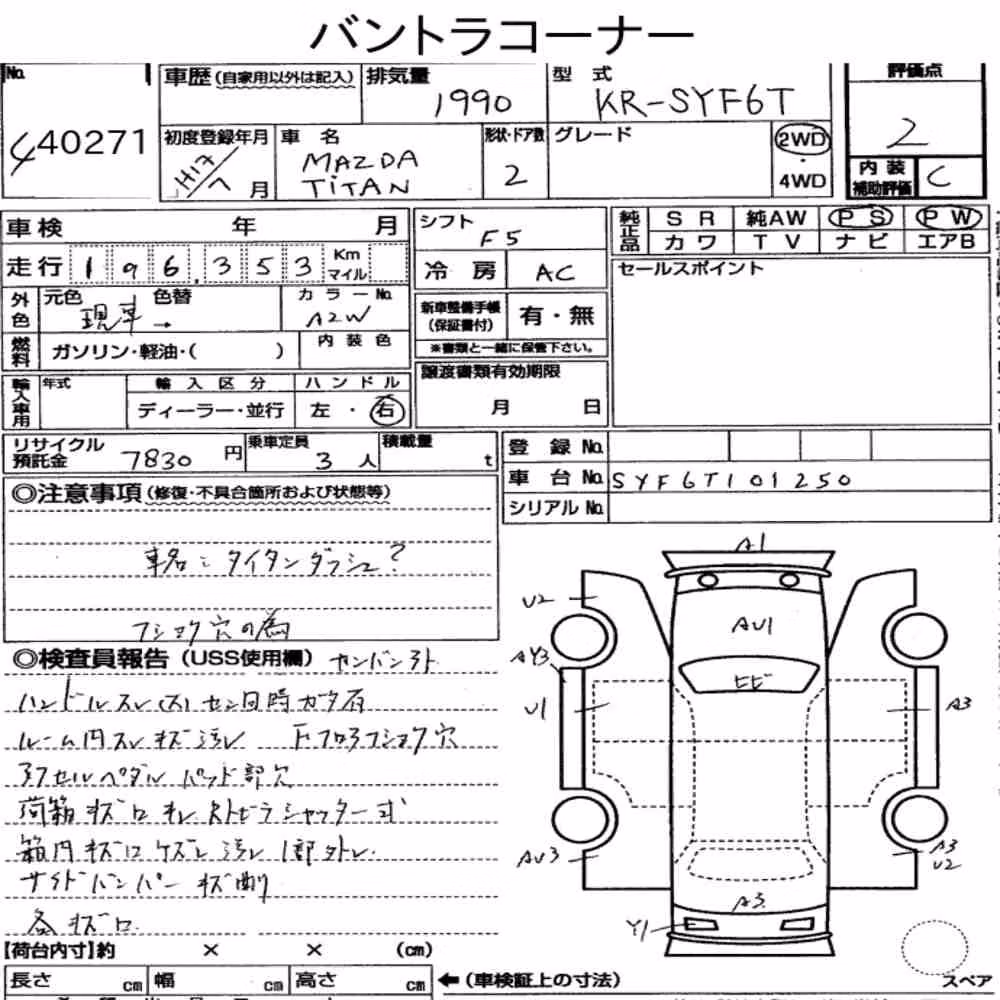 バントラコーナー
No.
440271
車歴(自家用以外は記入)
排気量
1990
型 式
KR-SYF6T
評価点
2
初度登録年月
H17/7 月
車 名
MAZDA
TITAN
形状・ドア数
2
グレード
2WD
・
4WD
内 装
補助評価
C
車検 年 月
走行 196,353 Km
マイル
シフト
F5
純正品
S R 純AW P S P W
カ ワ T V ナ ビ エアB
冷 房 AC
セールスポイント
外色
元色 色替
現車 →
カ ラ ー No.
A2W
新車整備手帳
(保証書付)
有・無
※書類と一緒に保管下さい。
燃料
ガソリン・軽油・( )
内 装 色
輸入車用
年式
輸 入 区 分
ディーラー・並行
ハ ン ド ル
左 ・ 右
譲渡書類有効期限
月 日
リサイクル
預託金 7830 円
乗車定員
3 人
積載量
t
登 録 No.
車 台 No. SYF6T101250
シリアル No.
◎注意事項(修復・不具合箇所および状態等)
車名:タイタンダッシュ?
フショク穴の為
◎検査員報告(USS使用欄) センバン外
ハンドルスレ(大) セン回時ガタ有
ルーム内スレ キズ 汚レ Fフロアフショク穴
アクセルペダル パッド部欠
荷箱キズ凹 キレ ストビラシャッター式
箱内キズ凹 ケズレ 汚レ 1部外レ.
サイドバンパー キズ削
各キズ凹
【荷台内寸】約 × × (cm)
長さ cm 幅 cm 高さ cm
←(車検証上の寸法)
A1
U2
AU1
AY3
ヒビ
U1
A3
AU3
A3
U2
A3
Y1
スペア